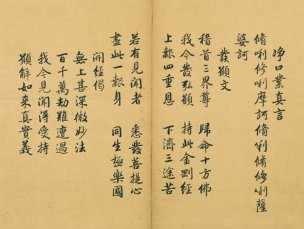 淨口業真言
脩唎脩唎摩訶脩唎脩脩唎薩
婆訶
發願文
稽首三界尊　歸命十方佛
我今發弘願　持此金剛經
上報四重恩　下濟三途苦
若有見聞者　悉發菩提心
盡此一報身　同生極樂國
開經偈
無上甚深微妙法
百千萬劫難遭遇
我今見聞得受持
願解如來真實義